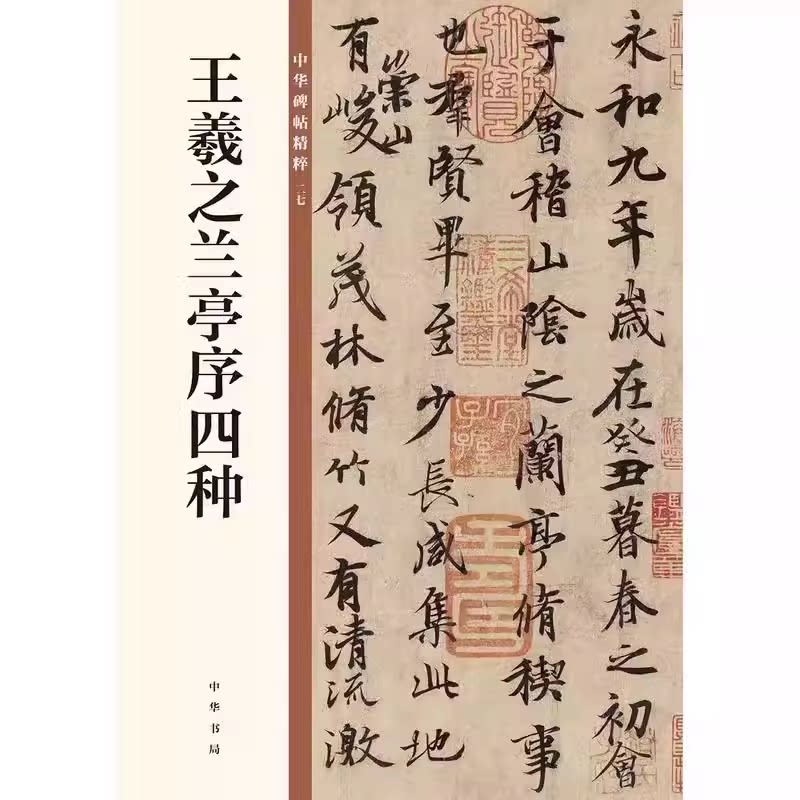 王羲之兰亭序四种
中华书局
中华碑帖精粹 二七
永和九年歲在癸丑暮春之初會
于會稽山陰之蘭亭脩稧事
也羣賢畢至少長咸集此地
有崇山峻領茂林脩竹又有清流激